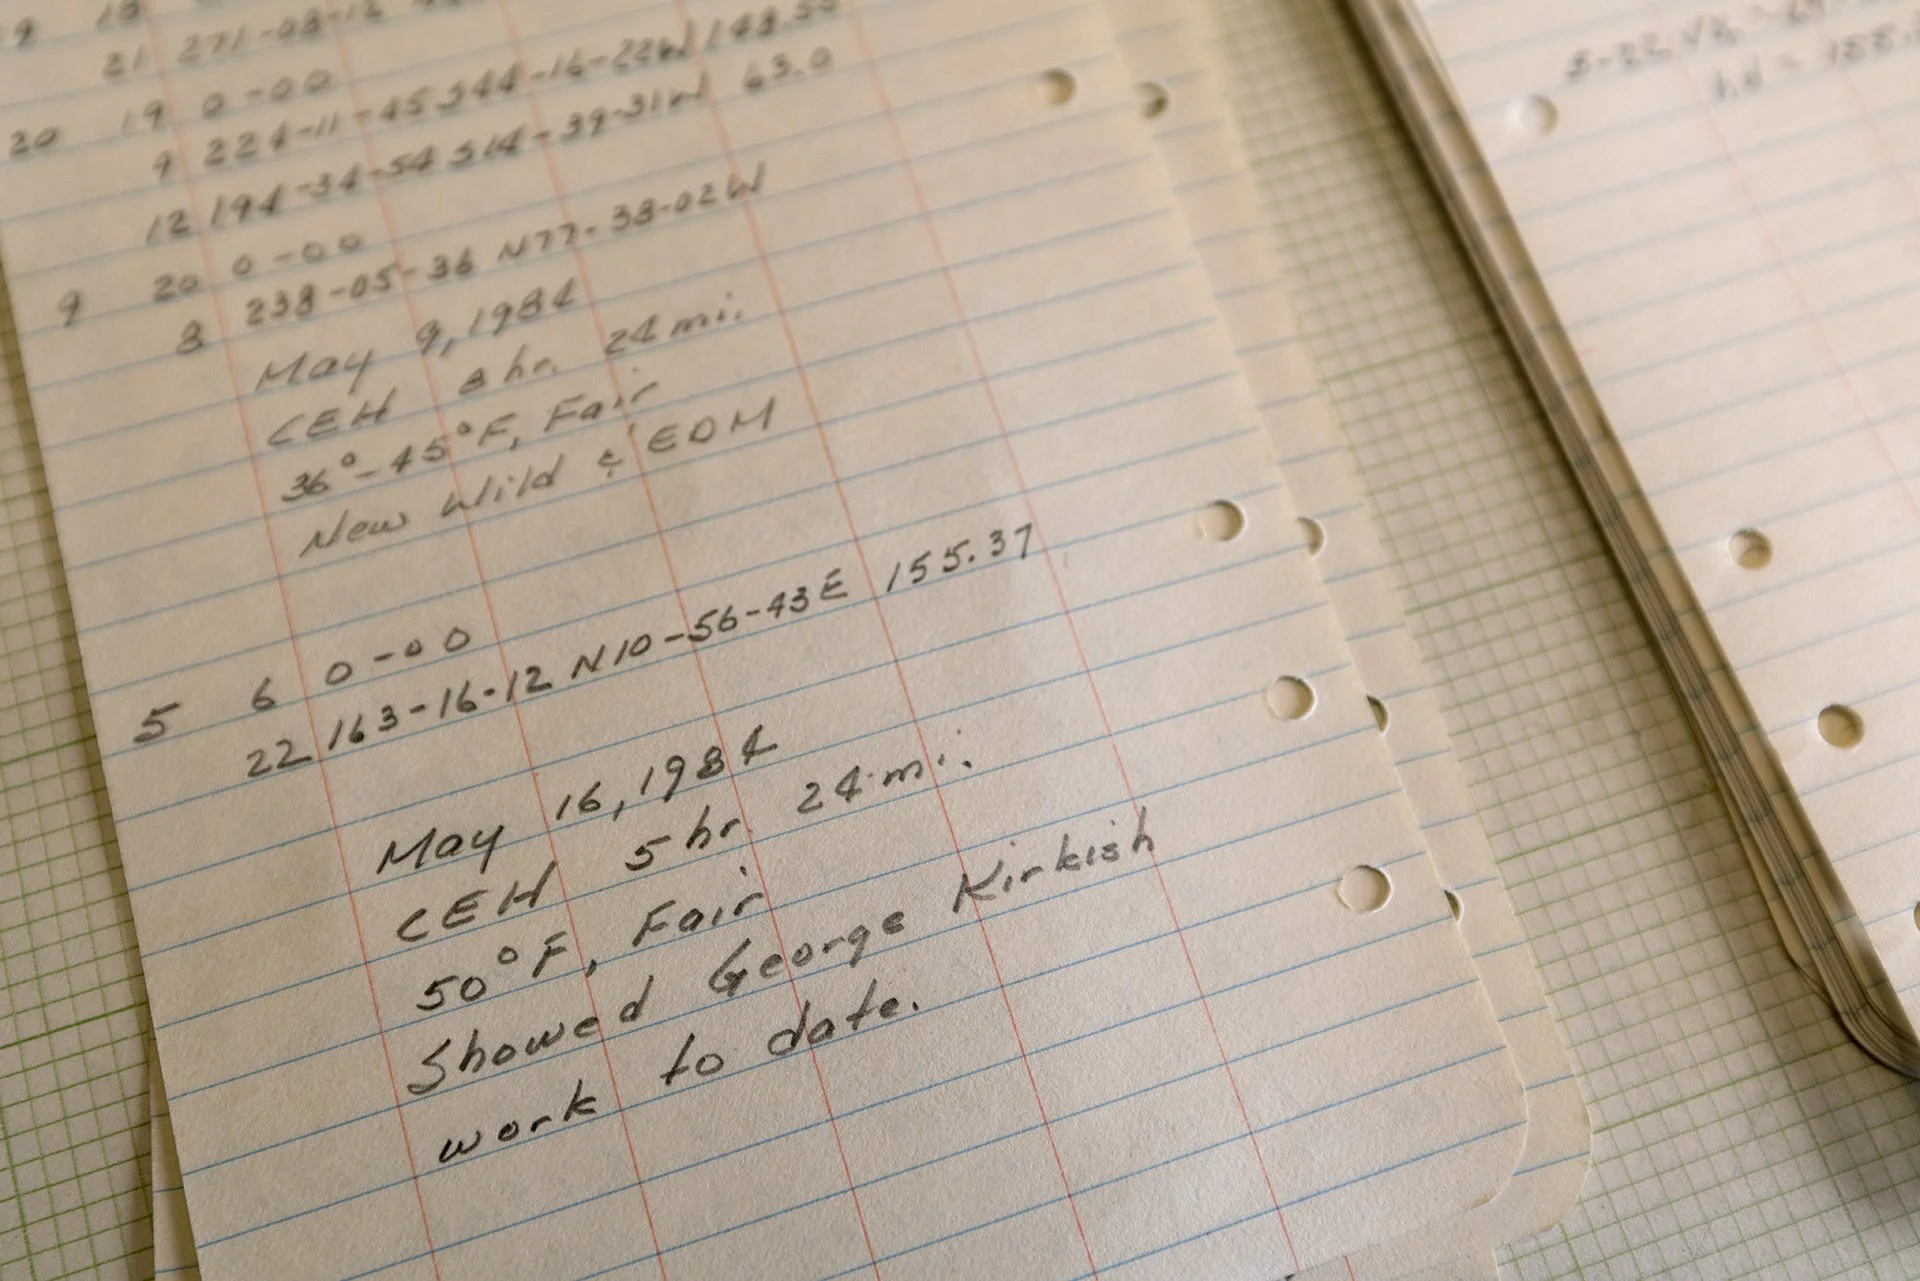 19 18
21 271-08-12
20 19 0-00
9 224-11-45 S44-16-22W 148.55
12 194-34-54 S14-39-31W 63.0
9 20 0-00
8 238-05-36 N77-38-02W
May 9, 1984
CEH 8 hr. 24 mi.
36°-45°F, Fair
New Wild & EDM
5 6 0-00
22 163-16-12 N10-56-43E 155.37
May 16, 1984
CEH 5 hr. 24 mi.
50°F, Fair
Showed George Kirkish
work to date.
5-22
hd = 155.